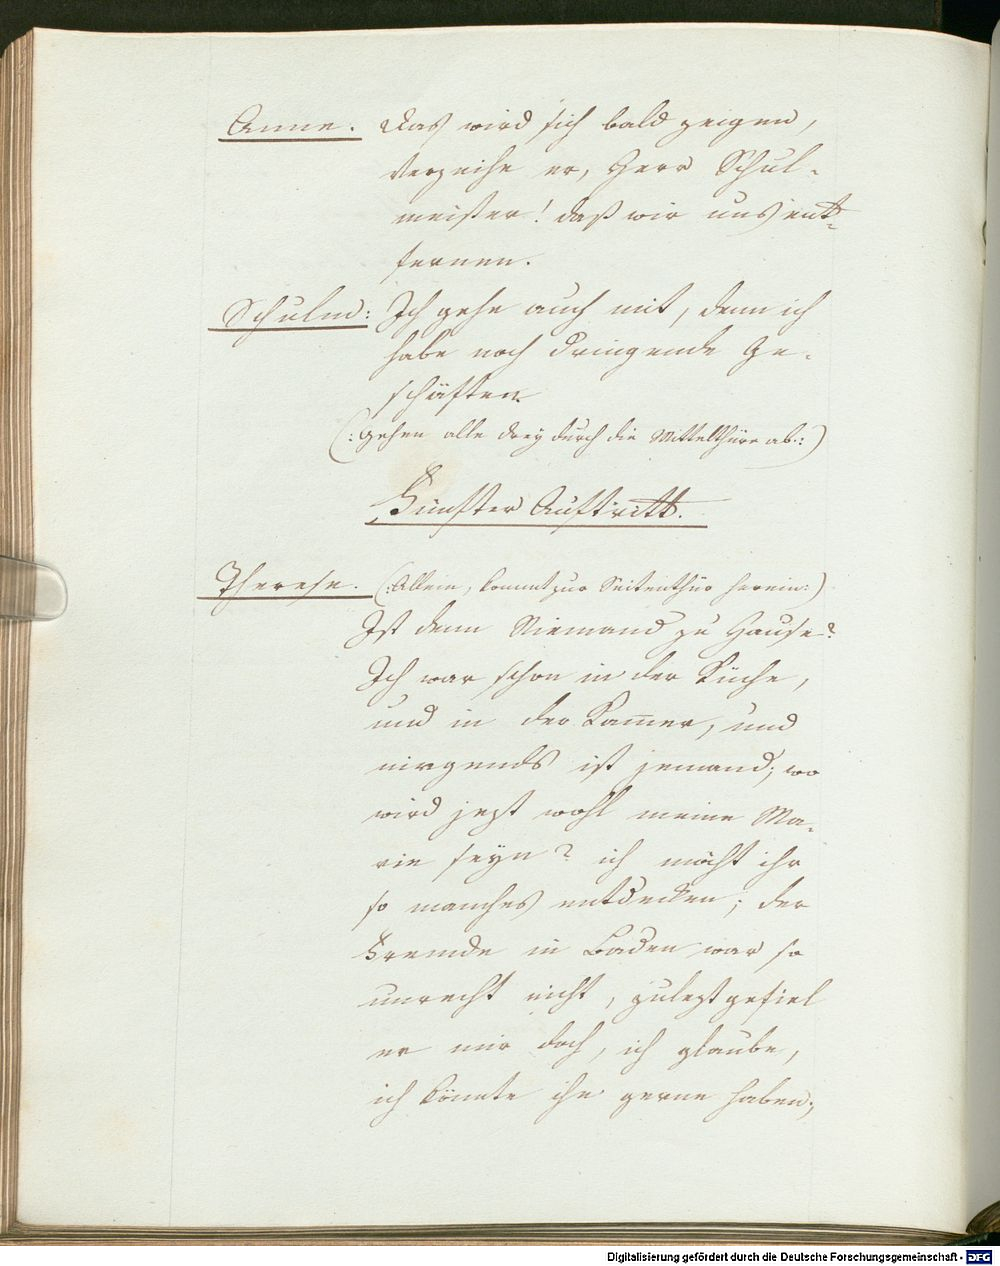 Anne. Das wird sich bald zeigen,
Verzeihe er, Herr Schul-
meister! daß wir uns ent-
fernen.
Schulm: Ich gehe auch mit, denn ich
habe noch dringende Ge-
schäften.
(: Gehen alle drey durch die Mittelthüre ab.:)
Fünfter Auftritt.
Therese. (: Allein, kommt zur Seitenthür herein:)
Ist denn Niemand zu Hause?
Ich war schon in der Küche,
und in der Kam̄er, und
nirgends ist jemand; wo
wird jezt wohl meine Ma-
rie seyn? ich möcht ihr
so manches entdecken; der
Fremde in Baden war so
unrecht nicht, zulezt gefiel
er mir doch, ich glaube,
ich könnte ihn gerne haben;
Digitalisierung gefördert durch die Deutsche Forschungsgemeinschaft - DFG